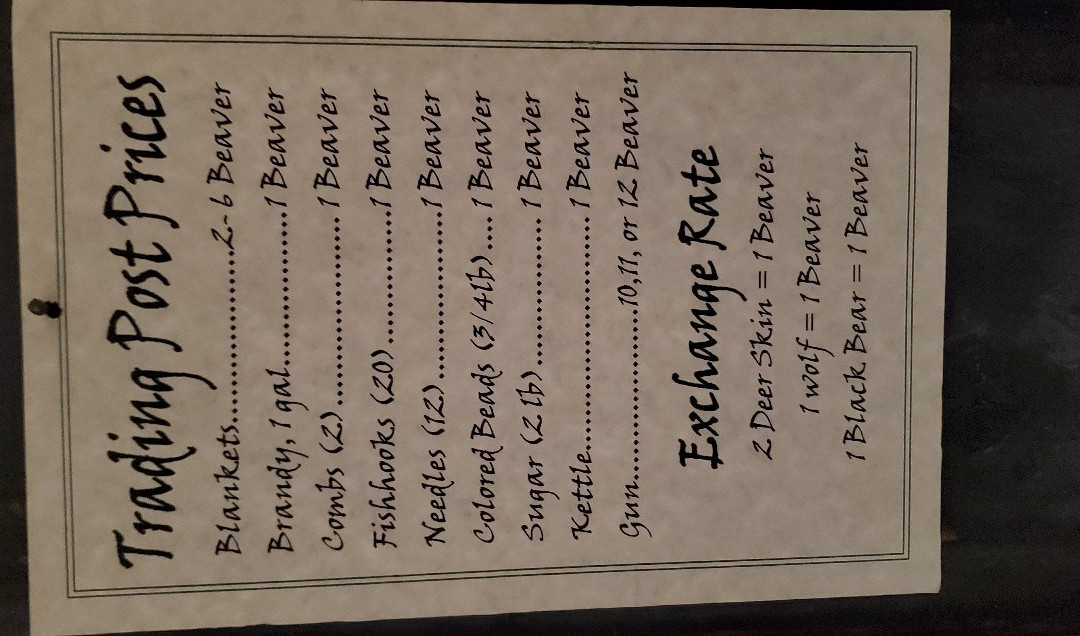 Trading Post Prices
Blankets.....................2-6 Beaver
Brandy, 1 gal.................1 Beaver
Combs (2)..................... 1 Beaver
Fishhooks (20)...............1 Beaver
Needles (12)..................1 Beaver
Colored Beads (3/4lb).... 1 Beaver
Sugar (2 lb)................. 1 Beaver
Kettle......................... 1 Beaver
Gun...................10,11, or 12 Beaver
Exchange Rate
2 Deer Skin = 1 Beaver
1 wolf = 1 Beaver
1 Black Bear = 1 Beaver